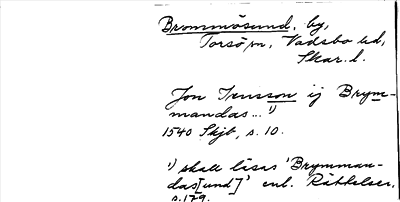 Brommösund, by,
Torsö sn, Vadsbo hd,
Skar. l.
Jon Swensson ij Brym-
mandas... ¹)
1540 Skjb, s. 10.
¹) skall läsas 'Brymman-
das[und]' enl. Rättelser,
s. 179.